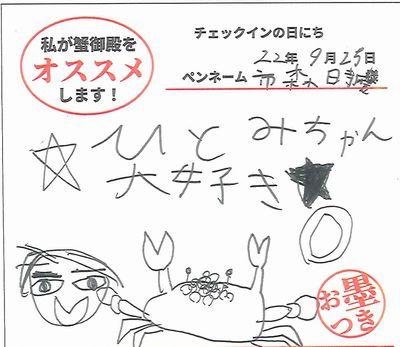 私が蟹御殿を
オススメ
します！
チェックインの日にち
22年 9月25日
ペンネーム 様
ひとみちゃん
大好き
お墨
つき